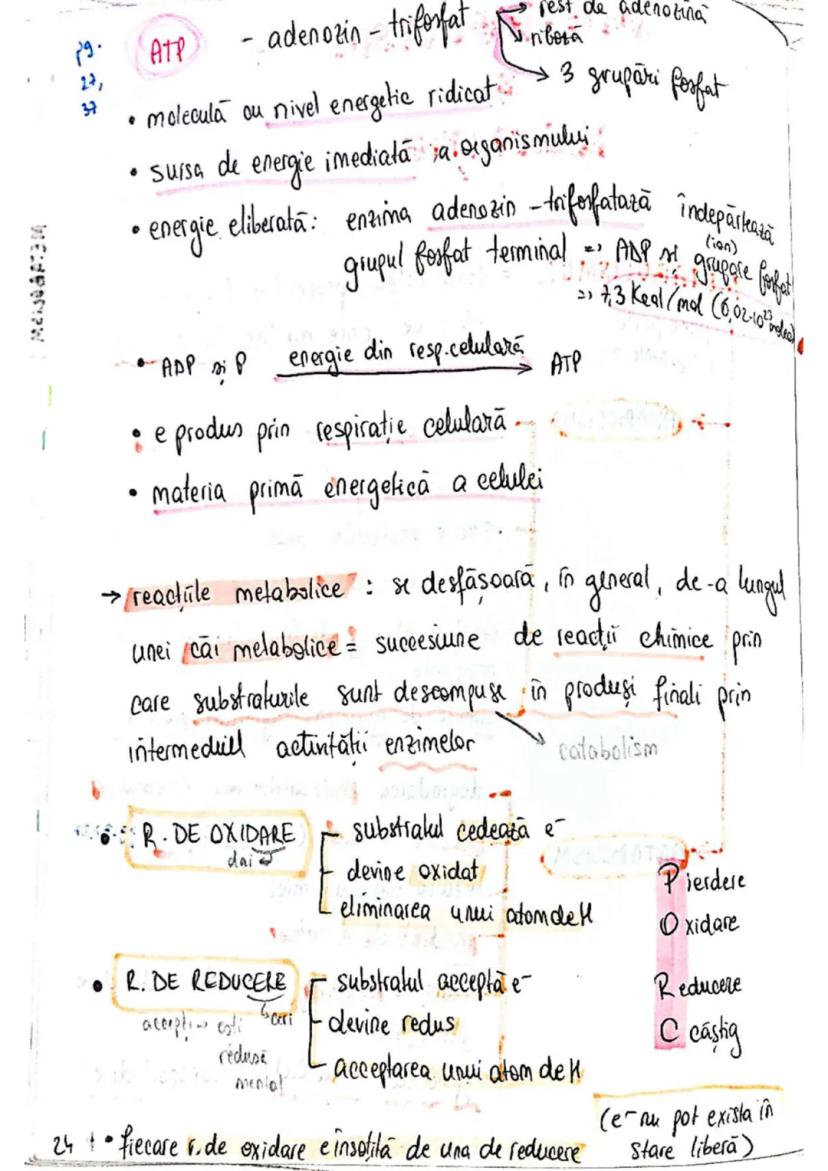 pg. 27, 37
ATP - adenozin-trifosfat
rest de adenozină
riboză
3 grupări fosfat
• moleculă cu nivel energetic ridicat
• sursa de energie imediată a organismului
• energie eliberată: enzima adenozin-trifosfatază îndepărtează
grupul fosfat terminal => ADP și grupare fosfat
(ion)
=> 7,3 Kcal/mol (6,02·10²³ molec)
• ADP și P energie din resp. celulară ATP
• e produs prin respirație celulară
• materia primă energetică a celulei
→ reacțiile metabolice : se desfășoară, în general, de-a lungul
unei căi metabolice = succesiune de reacții chimice prin
care substraturile sunt descompuse în produși finali prin
intermediul activității enzimelor
catabolism
• R. DE OXIDARE
dai
substratul cedează e⁻
devine oxidat
eliminarea unui atom de H
Pierdere
Oxidare
Reducere
Câștig
• R. DE REDUCERE
ceri
accepți → ești
redusă
mental
substratul acceptă e⁻
devine redus
acceptarea unui atom de H
(e⁻ nu pot exista în
stare liberă)
24 • fiecare r. de oxidare e însoțită de una de reducere